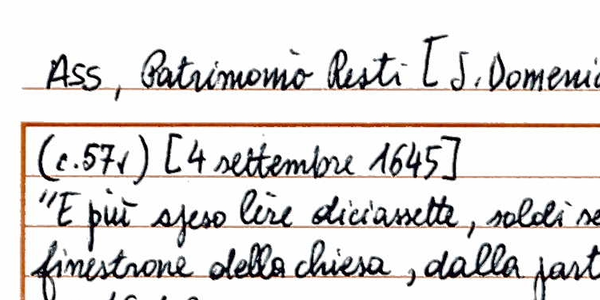 Ass, Patrimonio Resti [S. Domenic
(c.57v) [4 settembre 1645]
"E più speso lire diciassette, soldi se
finestrone della chiesa, dalla part